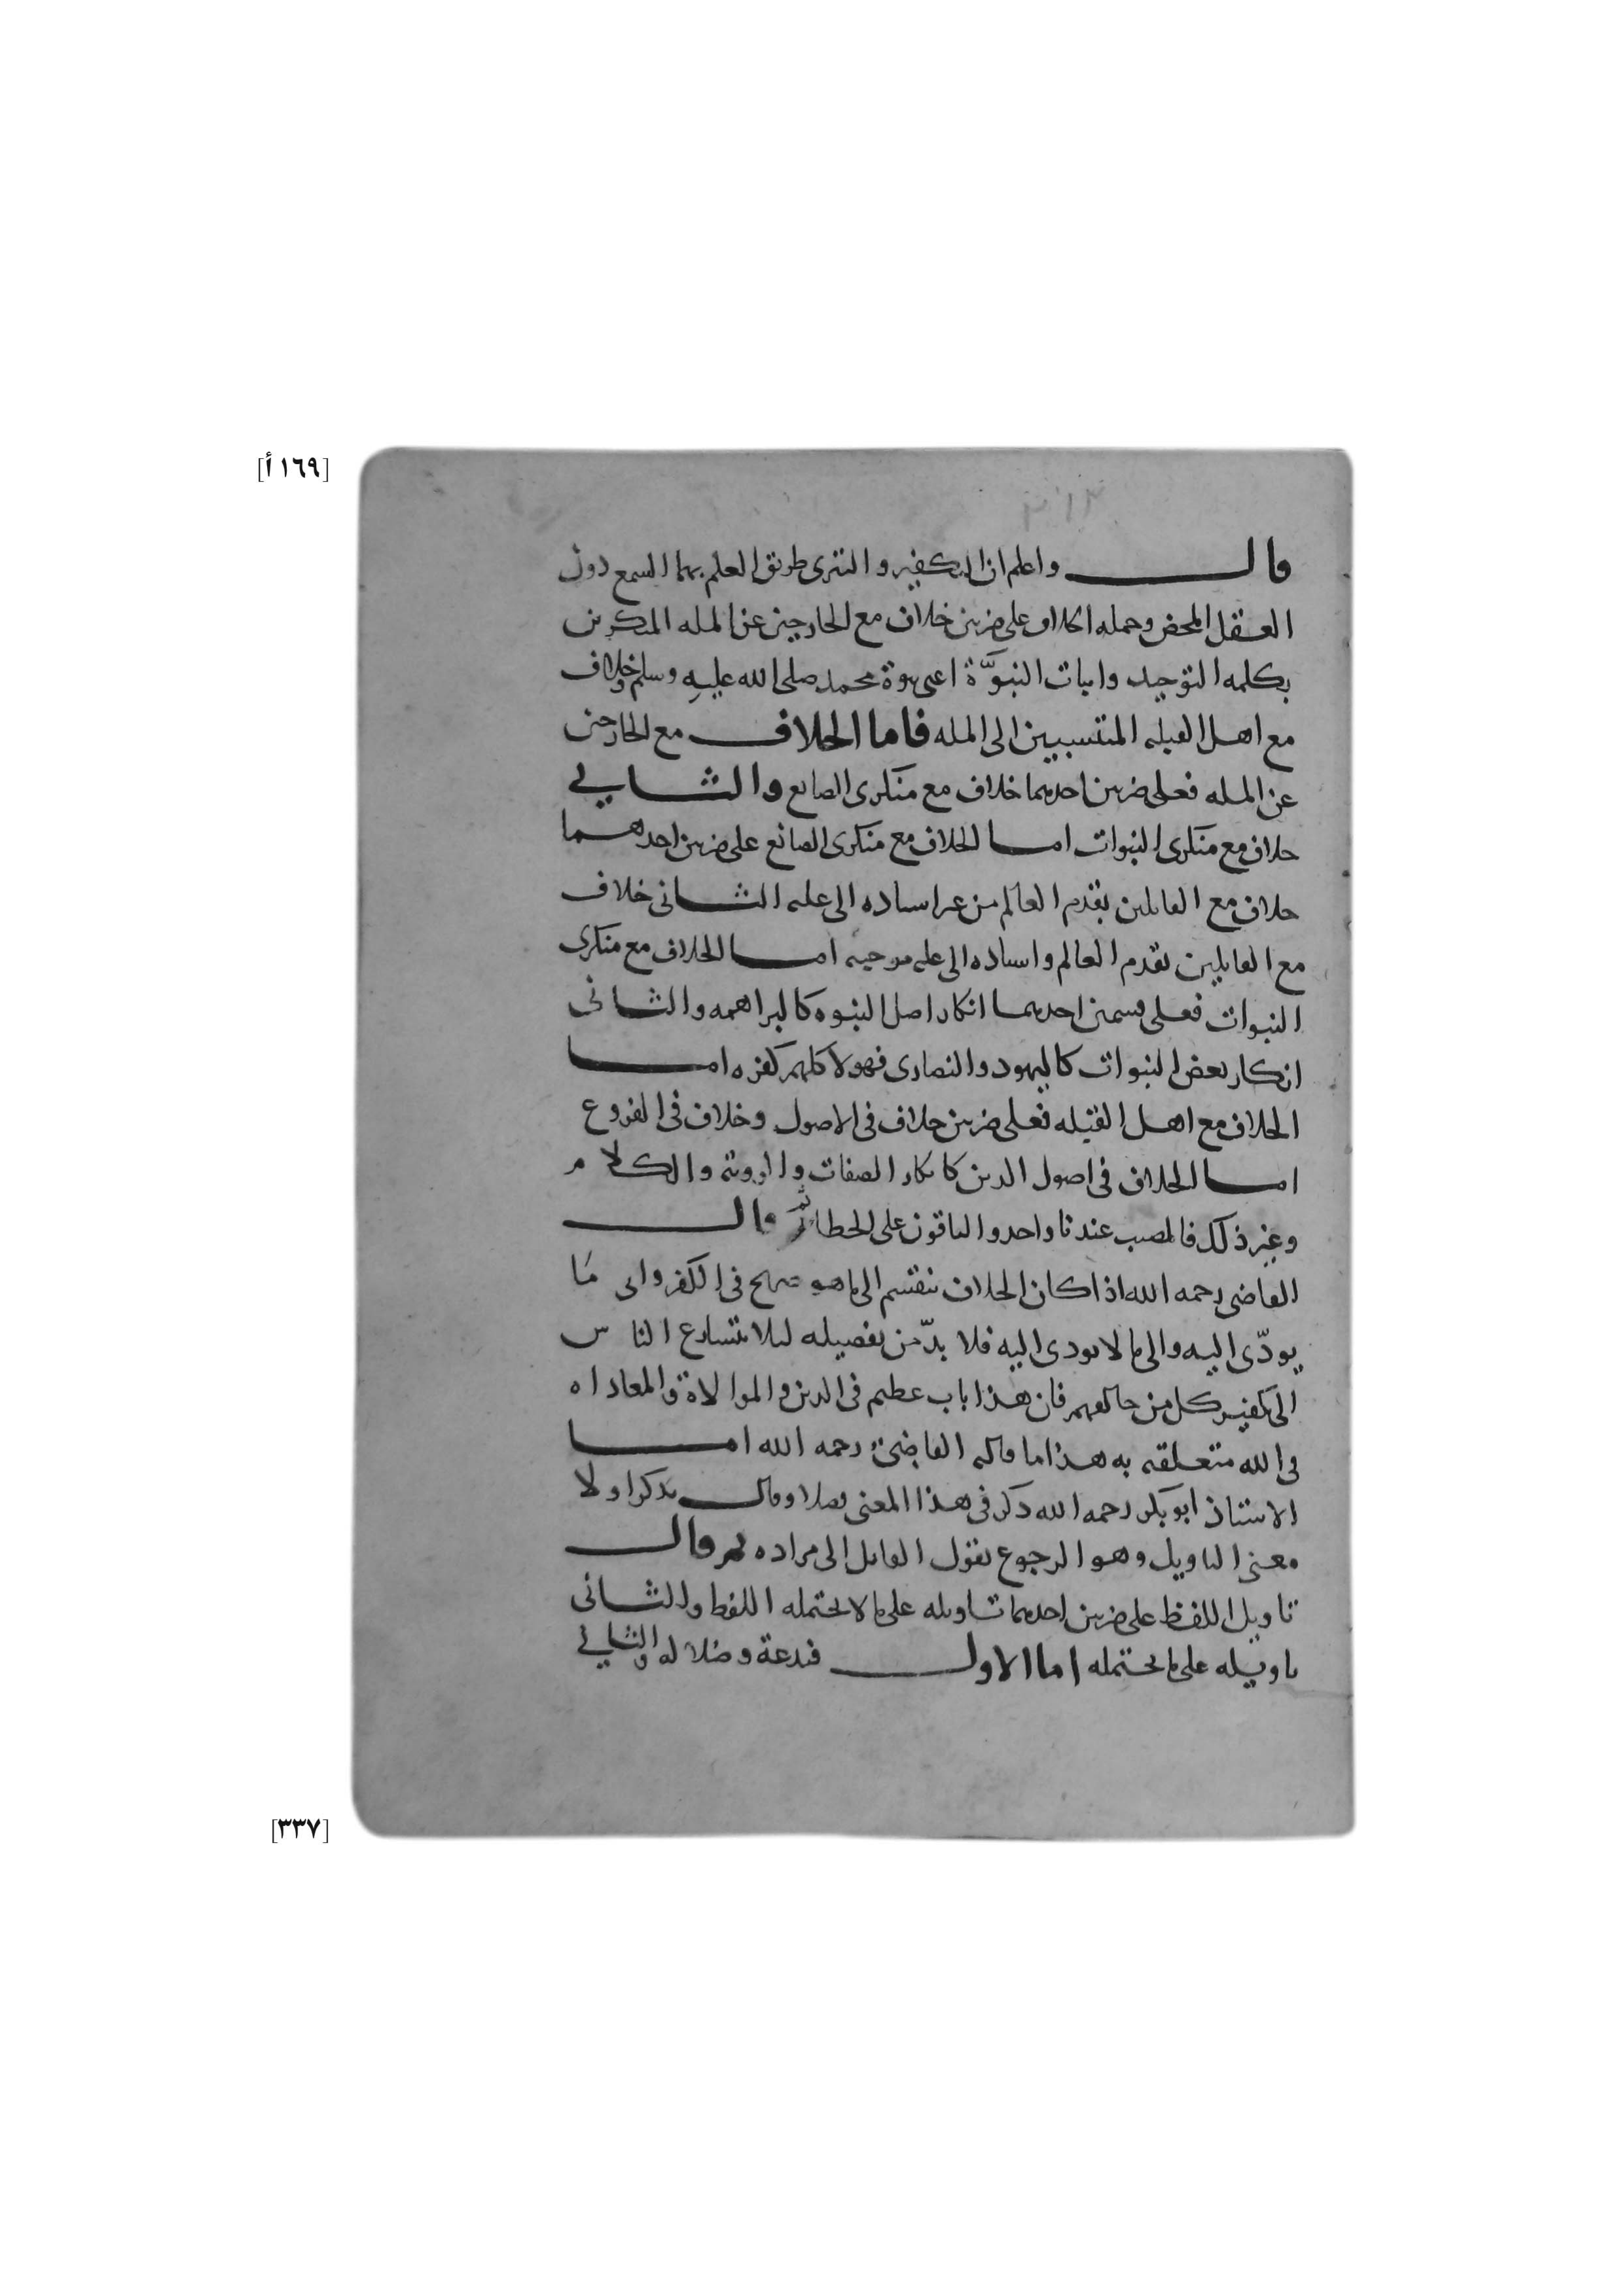 [١٦٩ أ]
قال واعلم ان التكفير والتبري طريق العلم بهما السمع دون
العقل المحض وجمله الخلاف على ضربين خلاف مع الخارجين عن المله المنكرين
بكلمه التوحيد واثبات النبوَّة اعني نبوة محمد صلى الله عليه وسلم وخلاف
مع اهل القبله المنتسبين الى المله فاما الخلاف مع الخارجين
عن المله فعلى ضربين احدهما خلاف مع منكرى الصانع والثاني
خلاف مع منكرى النبوات اما الخلاف مع منكرى الصانع على ضربين احدهما
خلاف مع القائلين بقدم العالم من غير اسناده الى عله الثانى خلاف
مع القايلين بقدم العالم واسناده الى عله موجبه اما الخلاف مع منكرى
النبوات فعلى قسمين احدهما انكار اصل النبوه كالبراهمه والثانى
انكار بعض النبوات كاليهود والنصارى فهولا كلهم كفره اما
الخلاف مع اهل القبله فعلى ضربين خلاف فى الاصول وخلاف فى الفروع
اما الخلاف فى اصول الدين كانكار الصفات والرويه والكلام
وغير ذلك فالمصيب عندنا واحد والباقون على الخطا ثم قال
القاضى رحمه الله اذا كان الخلاف ينقسم الى ما هو صريح فى الكفر والى مَا
يودّى اليه والى ما لا يودى اليه فلا بدّ من تفصيله ليلا يتسارع الناس
الى تكفير كل من خالفهم فان هذا باب عظيم فى الدين والموالاة والمعاداه
فى الله متعلقه به هذا ما قاله القاضى رحمه الله اما
الاستاذ ابو بكر رحمه الله ذكر فى هذا المعنى فصلا وقال نذكر اولا
معنى التاويل وهو الرجوع بقول القائل الى مراده ثم قال
تاويل اللفظ على ضربين احدهما تاويله على ما لا يحتمله اللفظ والثانى
تاويله على ما يحتمله اما الاول فبدعة وضلاله والثاني
[٣٣٧]